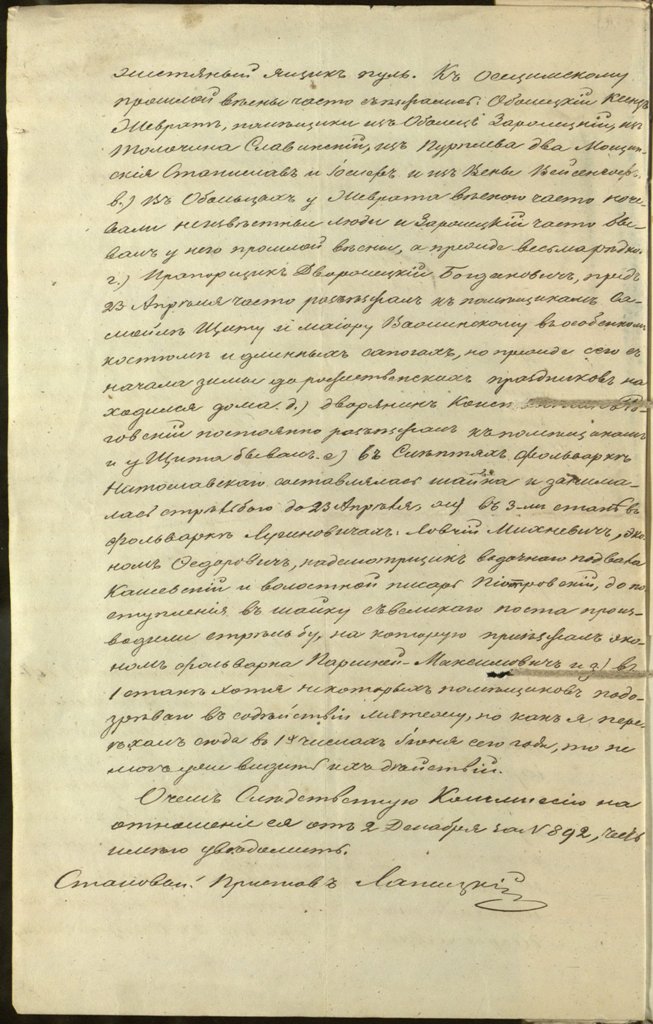 жестяный ящикъ пуль. Къ Осецимскому
прошлой весны часто съѣзжались: Обольцкій Ксендзъ
Жевратъ, помѣщики изъ Обольцъ Заролецкій, изъ
Толочина Славинскій, изъ Пурплева два Мощин-
скія Станиславъ и Іосифъ и изъ Вены Вейсенгофъ.
в.) Въ Обольцахъ у Жеврата весною часто ноче-
вали неизвѣстные люди и Заролецкій часто бы-
валъ у него прошлой весны, а прежде весьма рѣдко.
г.) Прапорщикъ Дворжецкій Богдановичъ, предъ
23 Апрѣля часто разъѣзжалъ къ помѣщикамъ Са-
мойлѣ Щиту и маіору Вашинскому въ особенномъ
костюмѣ и длинныхъ сапогахъ, но прежде сего съ
начала зимы до рождественскихъ праздниковъ на
ходился дома. д.) дворянинъ Конст
говскій постоянно разъѣзжалъ къ помѣщикамъ
и у Щита бывалъ. е) въ Слѣптяхъ фольваркѣ
Нитославскаго составлялась шайка и занима-
лась стрѣльбою до 23 Апрѣля, въ 3-мъ станѣ въ
фольваркѣ Лугиновичахъ: Ловчій Михневичъ, эко
номъ Федоровичъ, надсмотрщикъ водочнаго подвала
Кашевскій и волостной писарь Піотровскій, до по
ступленія въ шайку съ великаго поста произ-
водили стрѣльбу, на которую пріѣзжалъ эко-
номъ фольварка Максимовичъ и з) въ
1 станѣ хотя некоторыхъ помѣщиковъ подо-
зрѣваю въ содѣйствіи мятежу, но какъ я пере-
ѣхалъ сюда въ 1хъ числахъ Іюня сего года, то не
могъ уже видѣть ихъ дѣйствій.
О чемъ Слѣдственную Коммиссію на
отношеніе ея отъ 2 Декабря за N 892, честь
имѣю увѣдомить.
Становой Приставъ Лапицкій